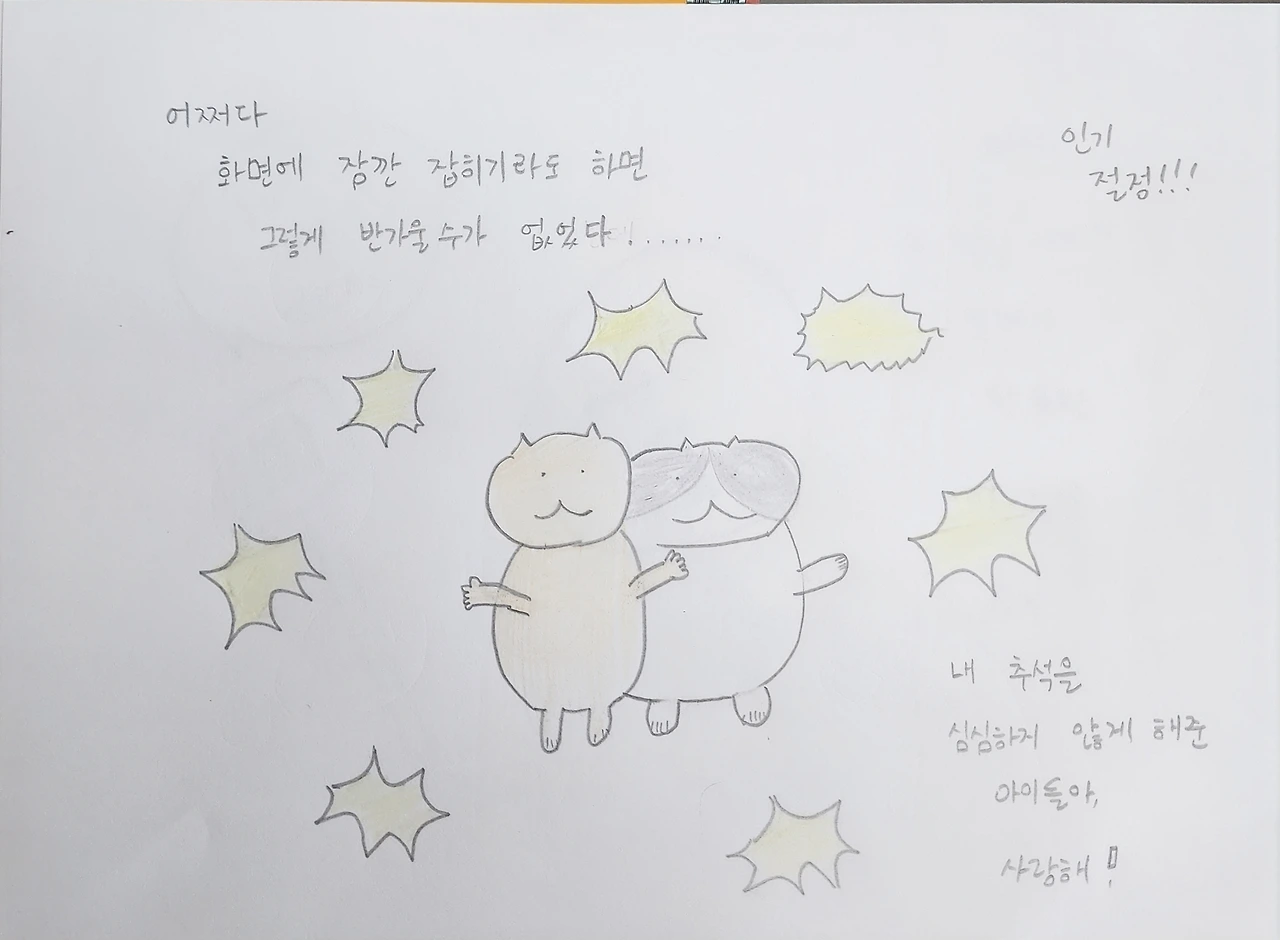 어쩌다
화면에 잠깐 잡히기라도 하면
그렇게 반가울수가 없었다!.......
인기
절정!!!
내 추석을
심심하지 않게 해준
아이들아,
사랑해!